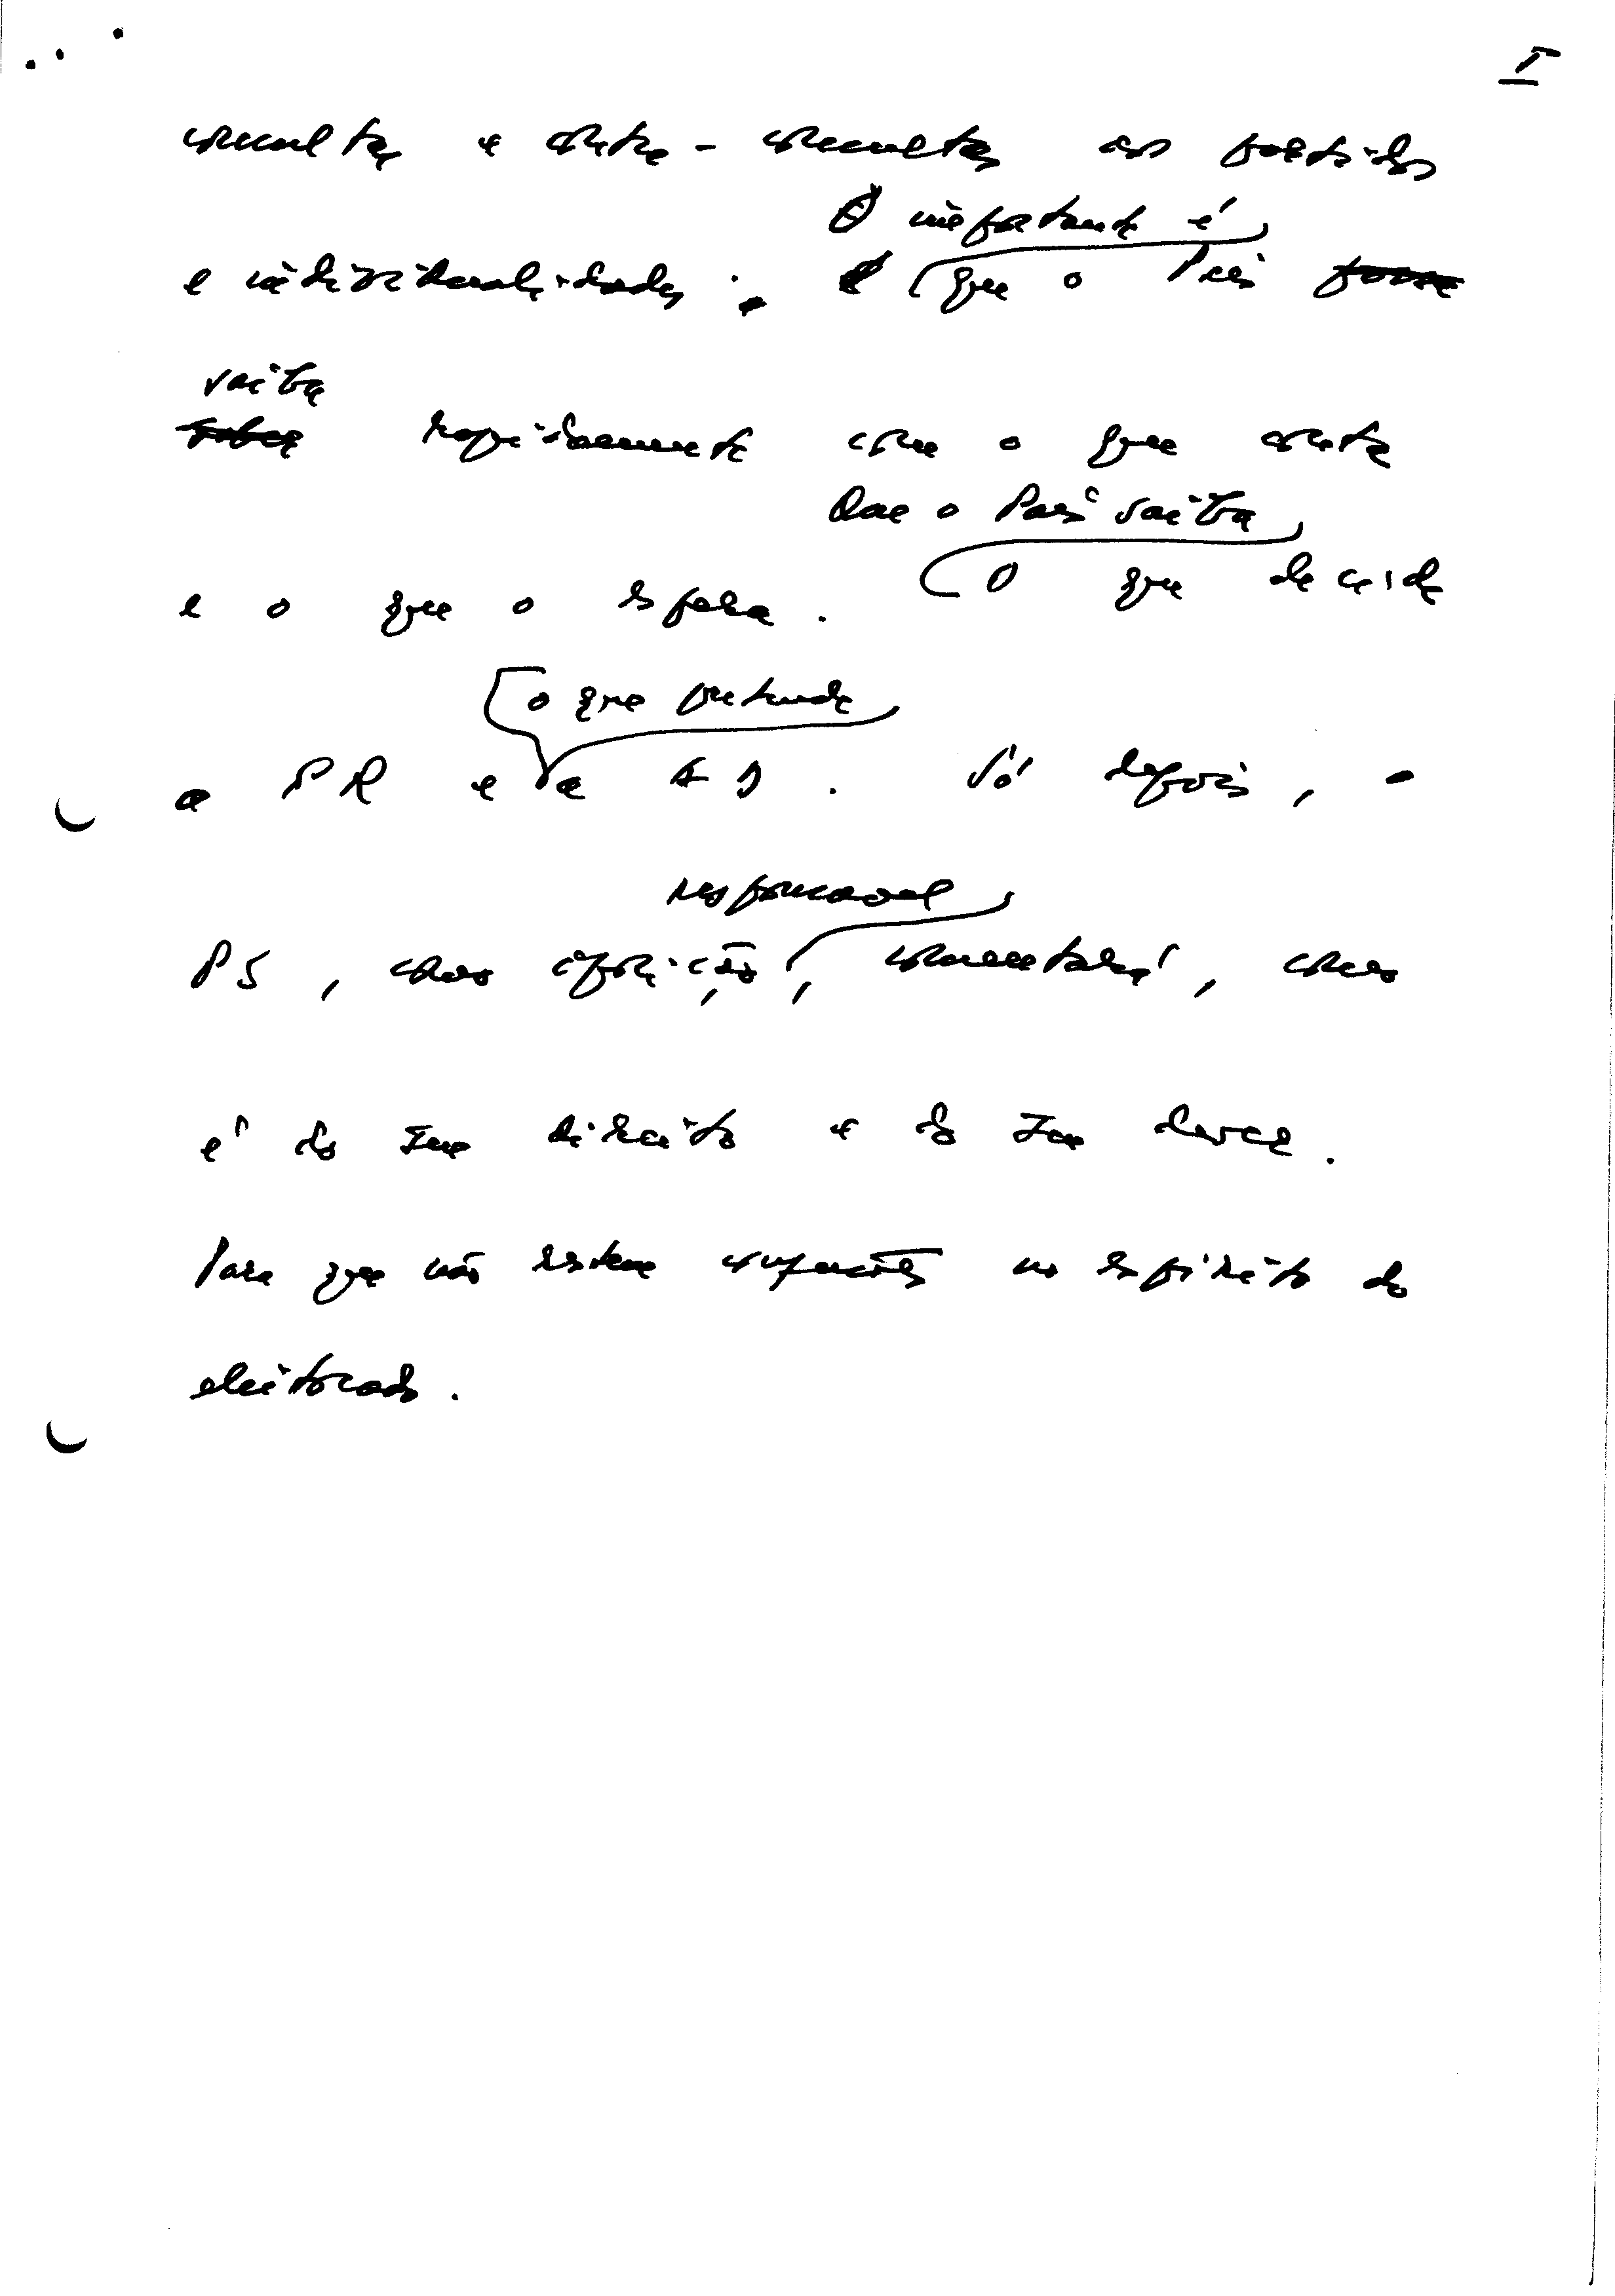 consultas e contra-consultas aos partidos
O importante é
e individualidades. que o País possa
saiba
saber rapidamente com o que conta
Que o País saiba
e o que o espera. O que decide
o que pretende
o PR e a AD. Só depois, o
responsável
PS, como oposição, comentará, como
é do seu direito e do seu dever.
Para que não restem confusões no espírito do
eleitorado.